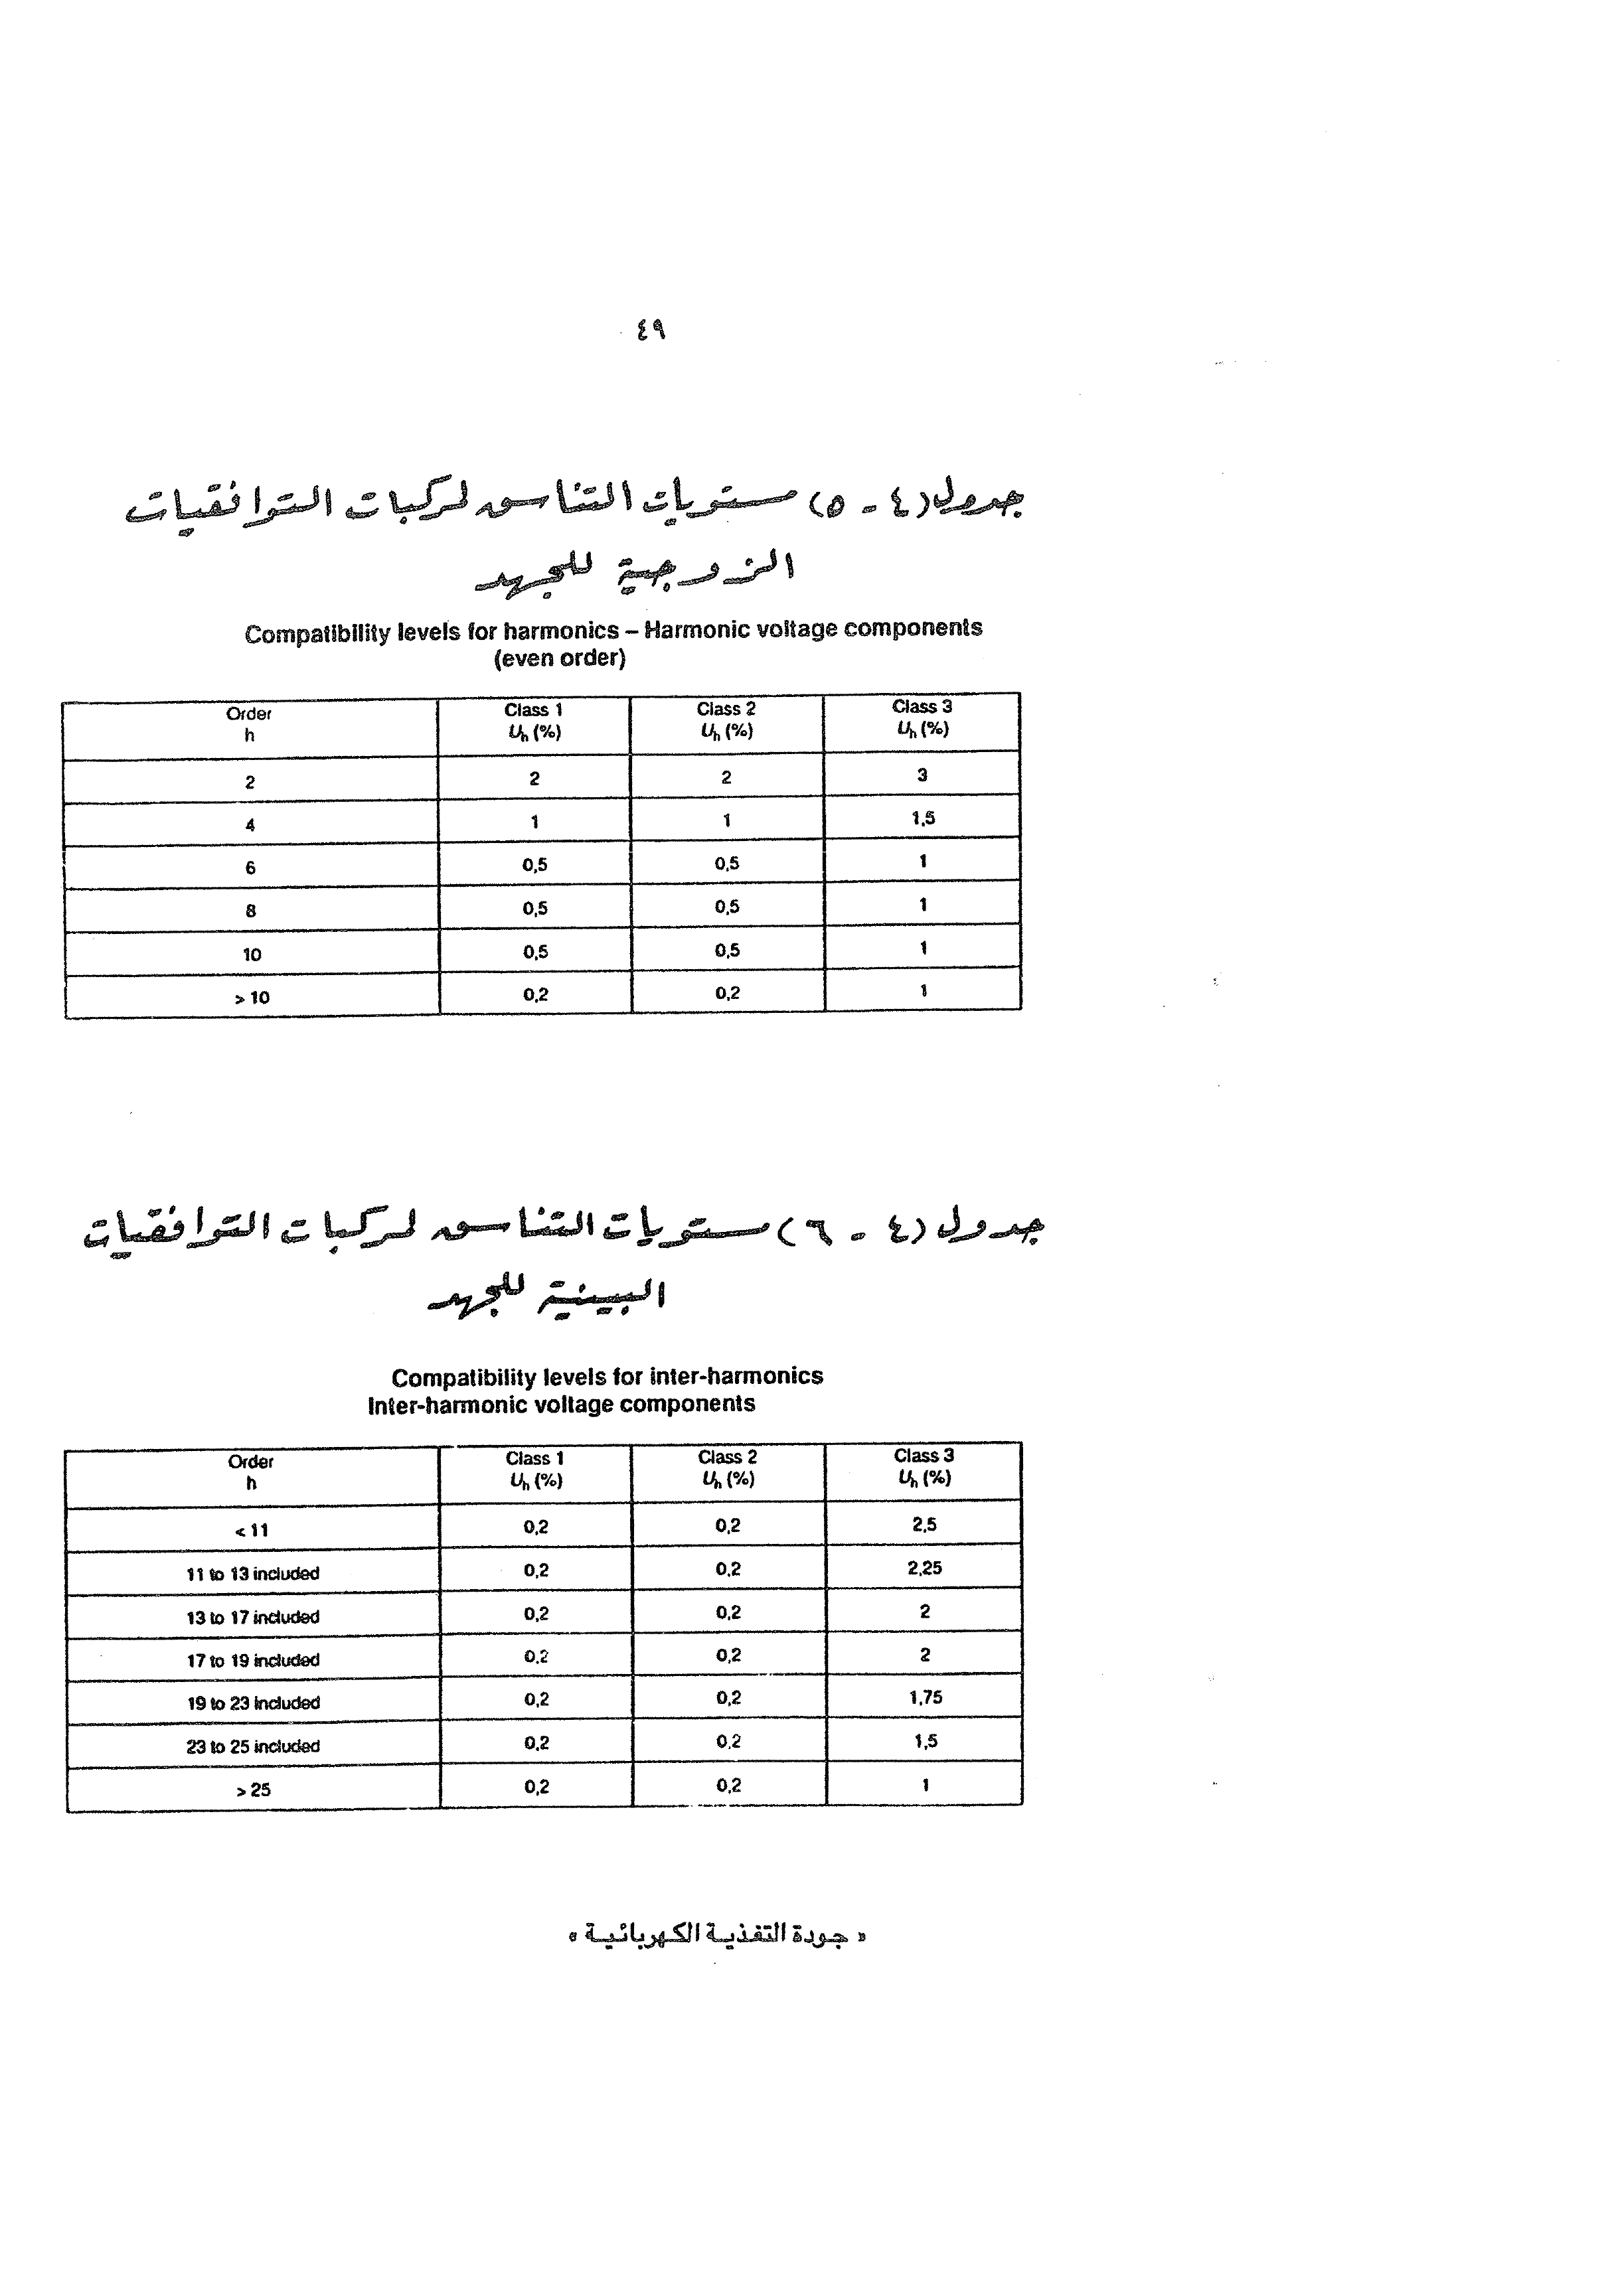 ٤٩
جدول (٤ - ٥) مستويات التناسق لمركبات التوافقيات
الزوجية للجهد
Compatibility levels for harmonics – Harmonic voltage components
(even order)
Order h Class 1 Uh (%) Class 2 Uh (%) Class 3 Uh (%)
2 2 2 3
4 1 1 1,5
6 0,5 0,5 1
8 0,5 0,5 1
10 0,5 0,5 1
> 10 0,2 0,2 1
جدول (٤ - ٦) مستويات التناسق لمركبات التوافقيات
البينية للجهد
Compatibility levels for inter-harmonics
Inter-harmonic voltage components
Order h Class 1 Uh (%) Class 2 Uh (%) Class 3 Uh (%)
< 11 0,2 0,2 2,5
11 to 13 included 0,2 0,2 2,25
13 to 17 included 0,2 0,2 2
17 to 19 included 0,2 0,2 2
19 to 23 included 0,2 0,2 1,75
23 to 25 included 0,2 0,2 1,5
> 25 0,2 0,2 1
« جودة التغذية الكهربائية »